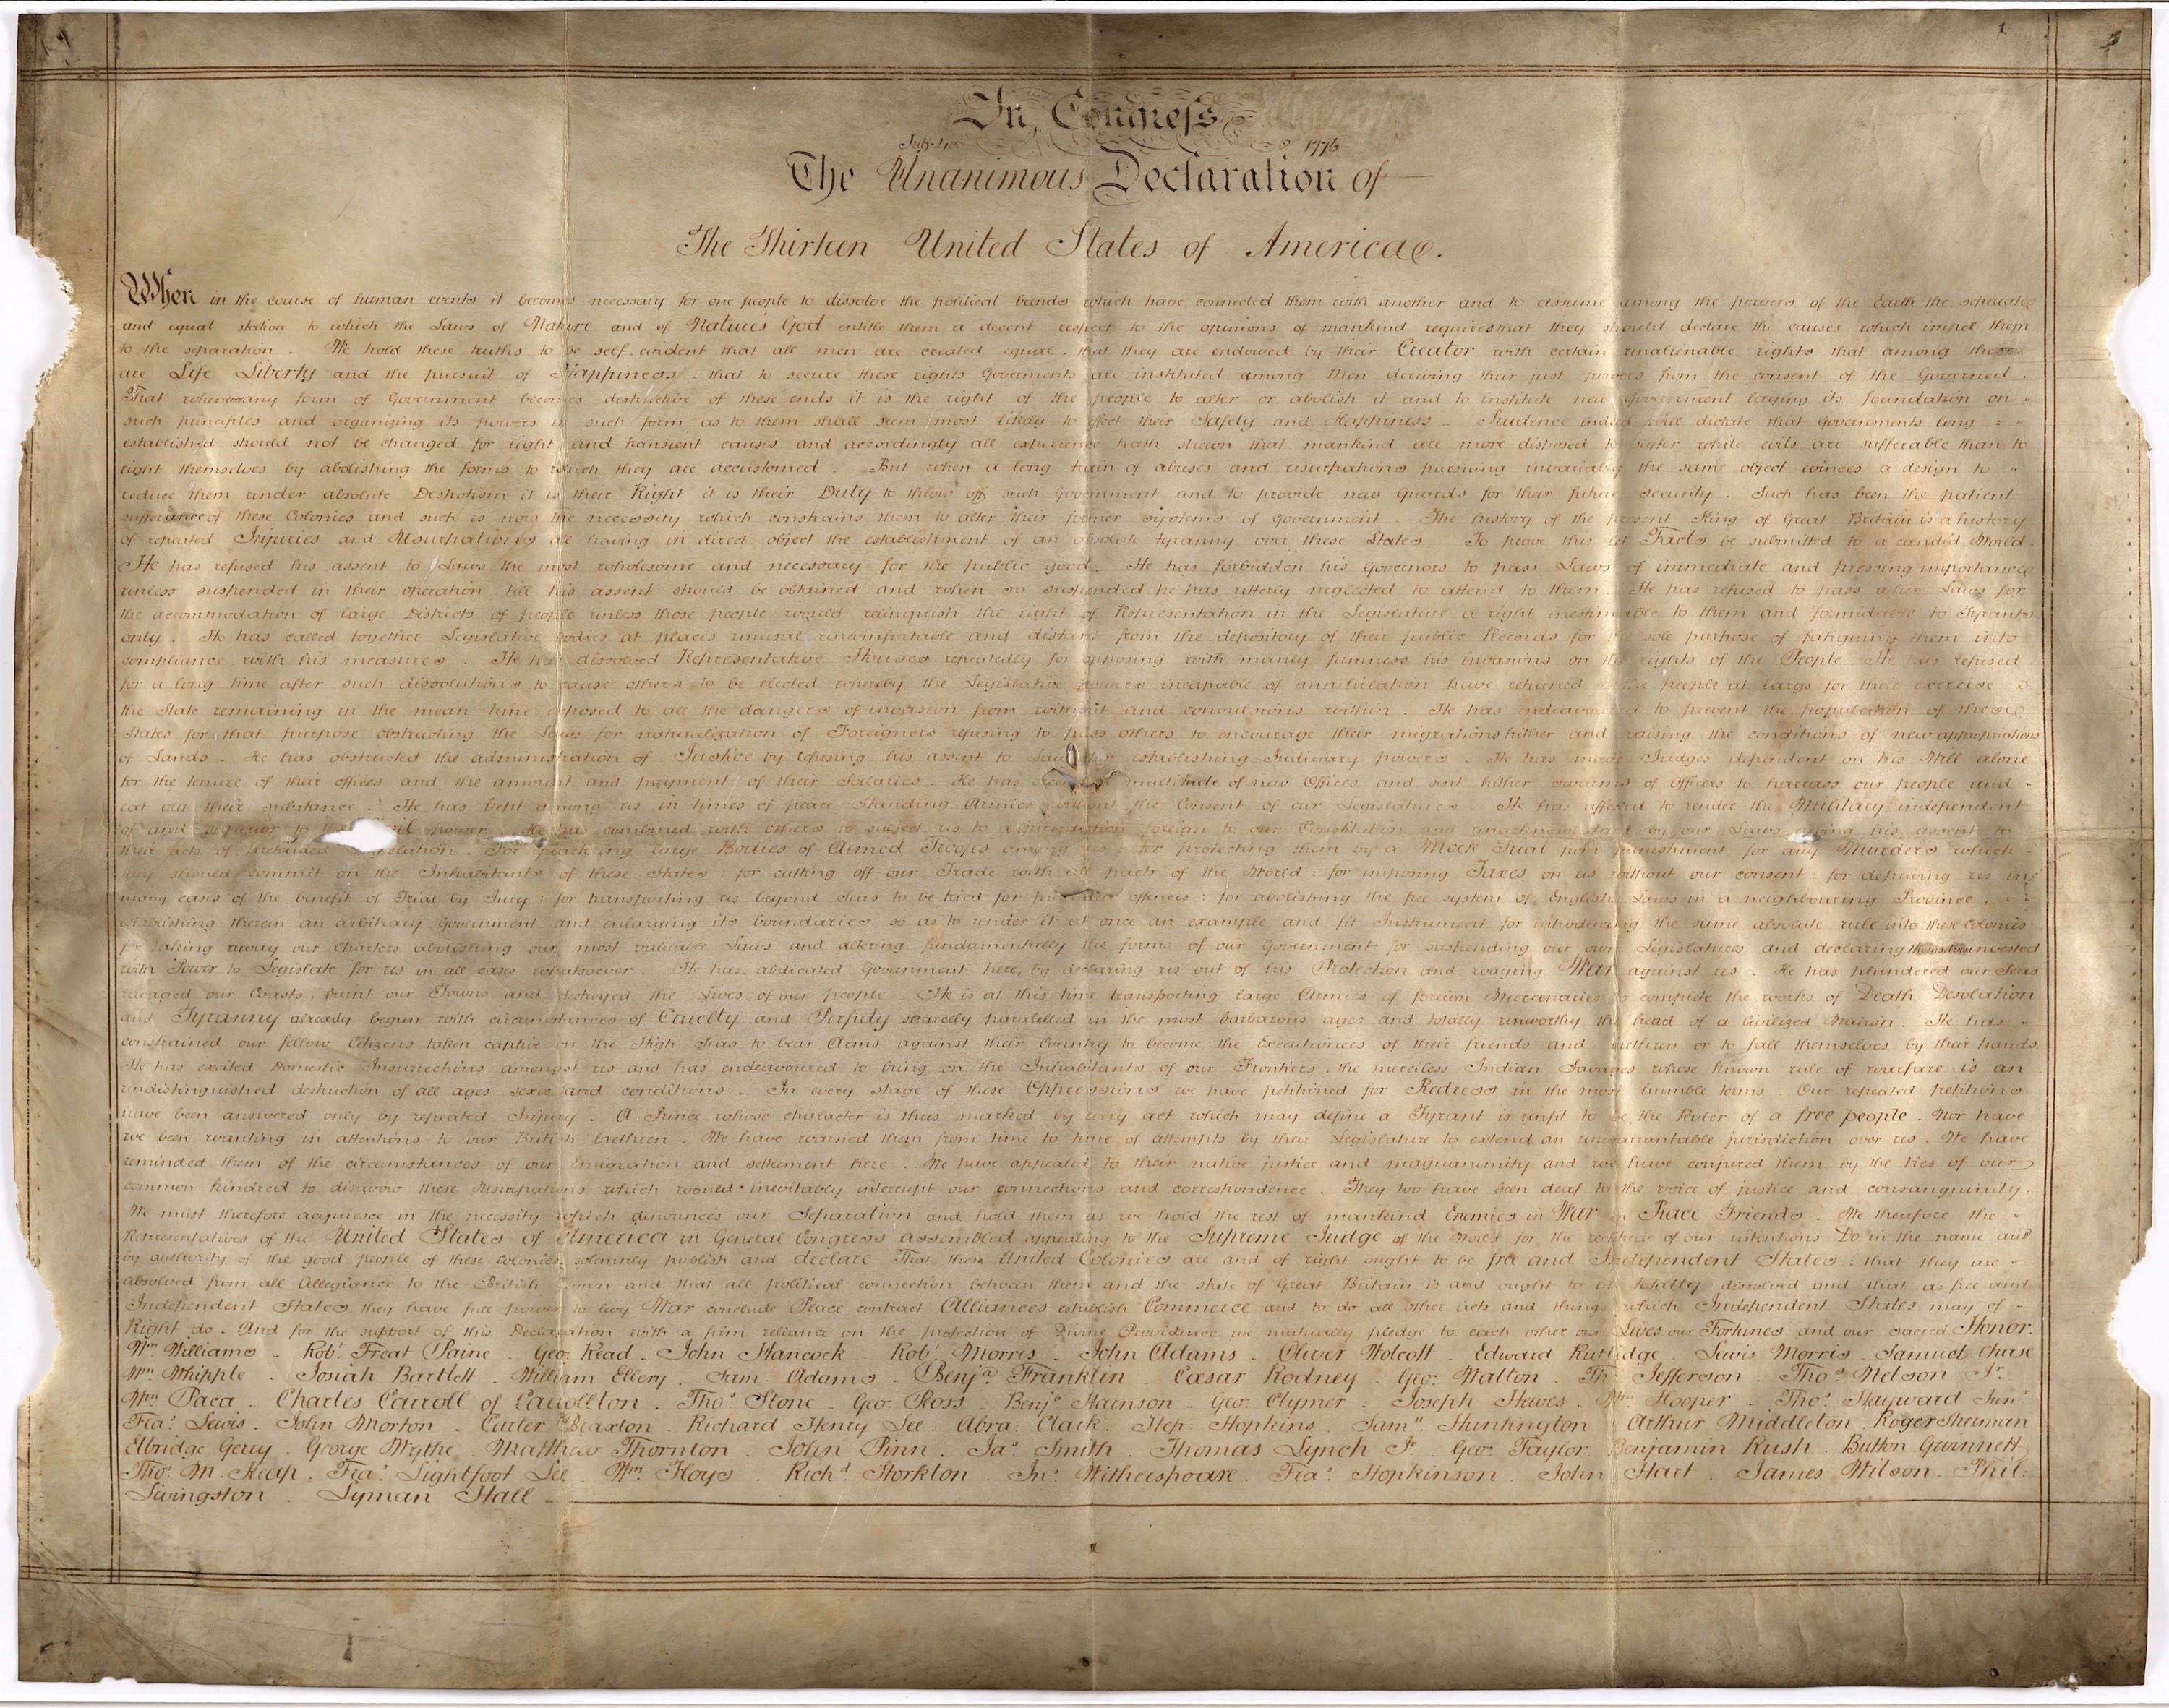 In Congress
July 4th 1776
The Unanimous Declaration of
The Thirteen United States of America.
When in the course of human events it becomes necessary for one people to dissolve the political bands which have connected them with another and to assume among the powers of the Earth the separate
and equal station to which the Laws of Nature and of Natures God entitle them a decent respect to the opinions of mankind requires that they should declare the causes which impel them
to the separation. We hold these truths to be self.evident that all men are created equal. that they are endowed by their Creator with certain unalienable rights that among these
are Life Liberty and the pursuit of Happiness - that to secure these rights Goverments are instituted among Men deriving their just powers from the consent of the Governed.
That whenever any form of Government becomes destructive of these ends it is the right of the people to alter or abolish it and to institute new Government laying its foundation on "
such principles and organizing its powers in such form as to them shall seem most likely to effect their Safety and Happiness. Prudence indeed will dictate that Governments long " "
established should not be changed for light and transient causes and accordingly all experience hath shewn that mankind are more disposed to suffer while evils are sufferable than to
right themselves by abolishing the forms to which they are accustomed. But when a long train of abuses and usurpations pursuing invariably the same object evinces a design to "
reduce them under absolute Despotism it is their Right it is their Duty to throw off such Government and to provide new Guards for their future security. Such has been the patient
sufferance of these Colonies and such is now the necessity which constrains them to alter their former systems of Government. The history of the present King of Great Britain is a history
of repeated Injuries and Usurpations all having in direct object the establishment of an absolute tyranny over these States. To prove this let Facts be submitted to a candid World.
He has refused his assent to Laws the most wholesome and necessary for the public good. He has forbidden his Governors to pass Laws of immediate and pressing importance
unless suspended in their operation till his assent should be obtained and when so suspended he has utterly neglected to attend to them. He has refused to pass other Laws for
the accommodation of large Districts of people unless those people would relinquish the right of Representation in the Legislature a right inestimable to them and formidable to Tyrants
only. He has called together Legislative bodies at places unusual uncomfortable and distant from the depository of their public Records for the sole purpose of fatiguing them into
compliance with his measures. He has dissolved Representative Houses repeatedly for opposing with manly firmness his invasions on the rights of the People. He has refused
for a long time after such dissolutions to cause others to be elected whereby the Legislative powers incapable of annihilation have returned to the people at large for their exercise
the State remaining in the mean time exposed to all the dangers of invasion from without and convulsions within. He has endeavoured to prevent the population of these
States for that purpose obstructing the Laws for naturalization of Foreigners refusing to pass others to encourage their migrations hither and raising the conditions of new appropriations
of Lands. He has obstructed the administration of Justice by refusing his assent to Laws for establishing Judiciary powers. He has made Judges dependent on his Will alone
for the tenure of their offices and the amount and payment of their Salaries. He has multitude of new Offices and sent hither swarms of Officers to harrass our people and "
eat out their substance. He has kept among us in times of peace Standing Armies without the Consent of our Legislatures. He has affected to render the Military independent
of and superior to the Civil power. He has combined with others to subject us to a jurisdiction foreign to our Constitution and unacknowledged by our Laws giving his assent to
their acts of pretended Legislation. For quartering large Bodies of Armed Troops among us: for protecting them by a Mock Trial from punishment for any Murders which
they should commit on the Inhabitants of these States: for cutting off our Trade with all parts of the World: for imposing Taxes on us without our consent: for depriving us in
many cases of the benefit of Trial by Jury: for transporting us beyond Seas to be tried for offences: for abolishing the free system of English Laws in a neighbouring Province,
establishing therein an arbitrary Government and enlarging its boundaries so as to render it at once an example and fit Instrument for introducing the same absolute rule into these Colonies.
for taking away our Charters abolishing our most valuable Laws and altering fundamentally the forms of our Government: for suspending our own Legislatures and declaring themselves invested
with Power to Legislate for us in all cases whatsoever. He has abdicated Government here, by declaring us out of his Protection and waging War against us. He has plundered our Seas
ravaged our Coasts, burnt our Towns and destroyed the Lives of our people. He is at this time transporting large Armies of foreign Mercenaries to complete the works of Death Desolation
and Tyranny already begun with circumstances of Cruelty and Perfidy scarcely paralelled in the most barbarous ages and totally unworthy the head of a Civilized Nation. He has "
constrained our fellow Citizens taken captive on the High Seas to bear Arms against their Country to become the Executioners of their friends and brethren or to fall themselves by their hands.
He has excited Domestic Insurrections amongst us and has endeavoured to bring on the Inhabitants of our Frontiers, the merciless Indian Savages whose known rule of warfare is an
undistinguished destruction of all ages sexes and conditions. In every stage of these Oppressions we have petitioned for Redress in the most humble terms. Our repeated petitions
have been answered only by repeated Injury. A Prince whose character is thus marked by every act which may define a Tyrant is unfit to be the Ruler of a free people. Nor have
we been wanting in attentions to our British brethren. We have warned them from time to time of attempts by their Legislature to extend an unwarrantable jurisdiction over us. We have
reminded them of the circumstances of our Emigration and settlement here. We have appealed to their native justice and magnanimity and we have conjured them by the ties of our
common kindred to disavow these Usurpations which would inevitably interrupt our connections and correspondence. They too have been deaf to the voice of justice and consanguinity.
We must therefore acquiesce in the necessity which denounces our Separation and hold them as we hold the rest of mankind Enemies in War in Peace Friends. We therefore the "
Representatives of the United States of America in General Congress assembled appealing to the Supreme Judge of the World for the rectitude of our intentions Do in the name and
by authority of the good people of these Colonies solemnly publish and declare That these United Colonies are and of right ought to be free and Independent States: that they are "
absolved from all Allegiance to the British Crown and that all political connection between them and the state of Great Britain is and ought to be totally dissolved and that as free and
Independent States they have full power to levy War conclude Peace contract Alliances establish Commerce and to do all other acts and things which Independent States may of "
Right do. And for the support of this Declaration with a firm reliance on the protection of Divine Providence we mutually pledge to each other our Lives our Fortunes and our sacred Honor.
Wm Williams - Robt Treat Paine - Geo. Read - John Hancock Robt Morris - John Adams - Oliver Wolcott - Edward Rutlidge - Lewis Morris - Samuel Chase
Wm Whipple - Josiah Bartlett - William Ellery - Sam. Adams - Benja Franklin - Casar Rodney - Geo. Walton - Th Jefferson - Thos Nelson Jr
Wm Paca - Charles Carroll of Carrollton - Thos Stone - Geo. Ross - Benja Harinson - Geo. Clymer - Joseph Hewes - Wm Hooper - Thos Hayward Junr
Fras Lewis - John Morton - Carter Braxton - Richard Henry Lee - Abra: Clark - Step: Hopkins - Saml Huntington Arthur Middleton - Roger Sherman
Elbridge Gerry - George Wythe - Matthew Thornton - John Pinn - Jas Smith - Thomas Lynch Jr - Geo. Taylor. Benjamin Rush. Button Gwinnett
Thos M. Keap - Fras Lightfoot Lee Wm Floyd - Richd Storkton - Jno Witherspoare - Fras Hopkinson - John Hart - James Wilson - Phil:
Livingston - Lyman Hall